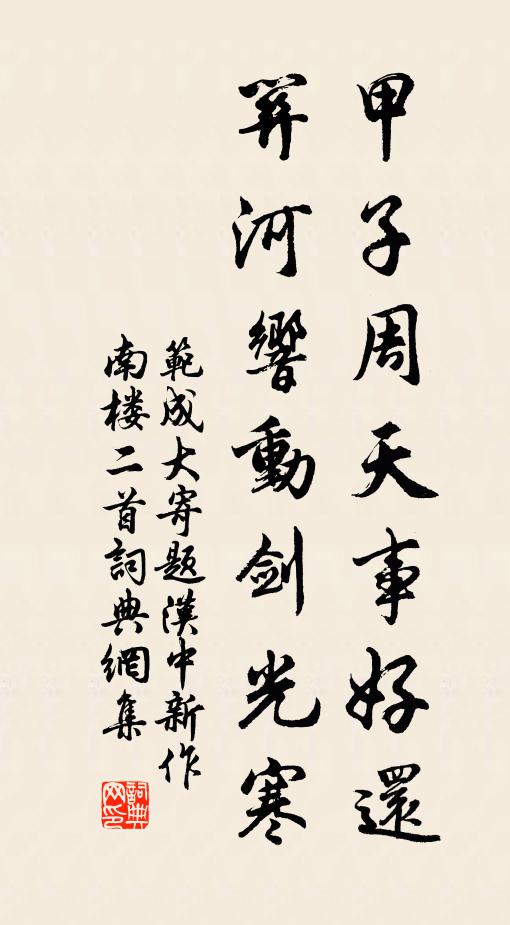 甲子周天事好還
關河響動劍光寒
範成大寄題漢中新作
南楼二首詞典網集
詞典
网印